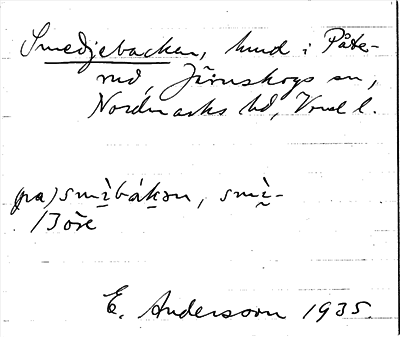 Smedjebacken, hmd i Påte-
rud, Järnskogs sn,
Nordmarks hd, Vrml l.
(pa) smìbákən, smì-
E. Andersson 1935.